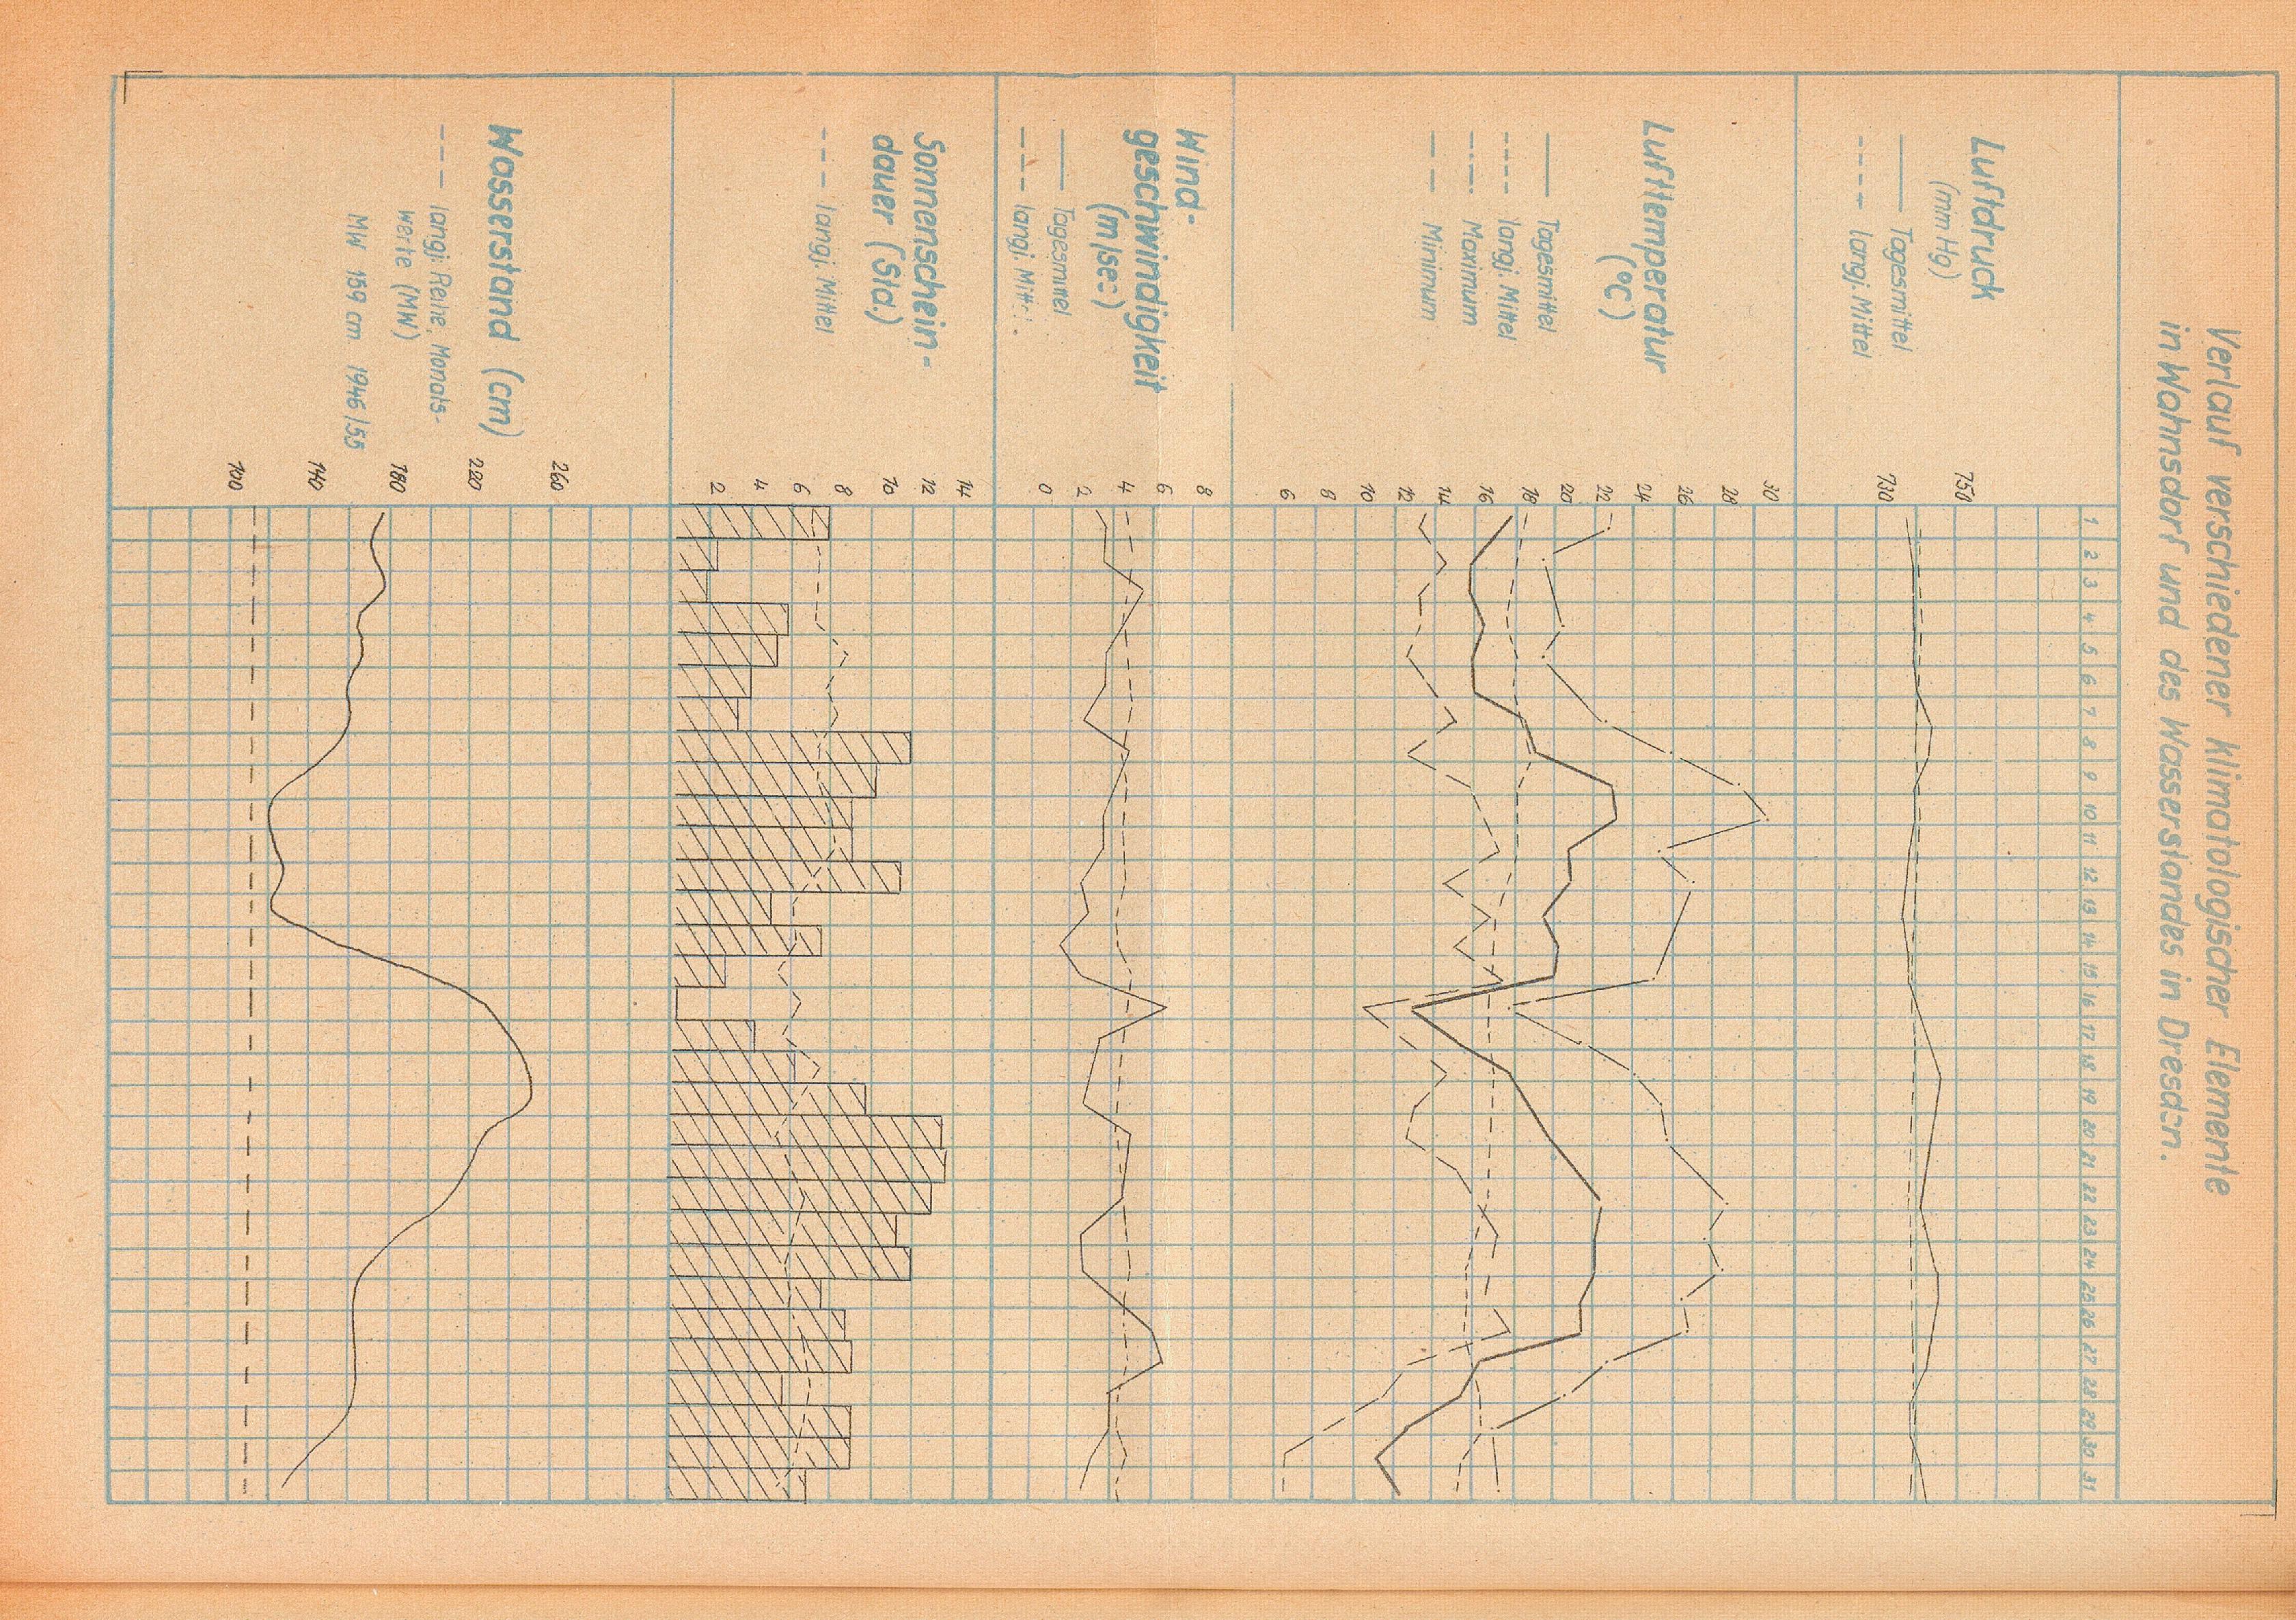 Verlauf verschiedener klimatologischer Elemente
in Wahnsdorf und des Wasserstandes in Dresden.
1 2 3 4 5 6 7 8 9 10 11 12 13 14 15 16 17 18 19 20 21 22 23 24 25 26 27 28 29 30 31
Luftdruck
(mm Hg)
Tagesmittel
langj. Mittel
750
730
Lufttemperatur
(°C)
Tagesmittel
langj. Mittel
Maximum
Minimum
30
28
26
24
22
20
18
16
14
12
10
8
6
Wind-
geschwindigkeit
(m/sec)
Tagesmittel
langj. Mitt.
8
6
4
2
0
Sonnenschein-
dauer (Std.)
langj. Mittel
14
12
10
8
6
4
2
Wasserstand (cm)
langj. Reihe, Monats-
werte (MW)
MW 159 cm 1946/55
260
220
180
140
100